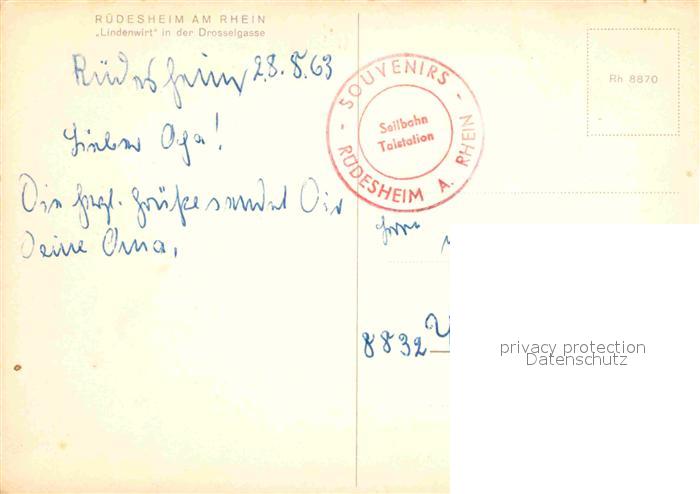 RÜDESHEIM AM RHEIN
„Lindenwirt" in der Drosselgasse
Rüdesheim 28.8.63
Lieber Opa!
Die herzl. Grüße sendet Dir
Deine Oma.
- SOUVENIRS -
Seilbahn
Talstation
RÜDESHEIM A. RHEIN
Rh 8870
Herrn
8832
privacy protection
Datenschutz